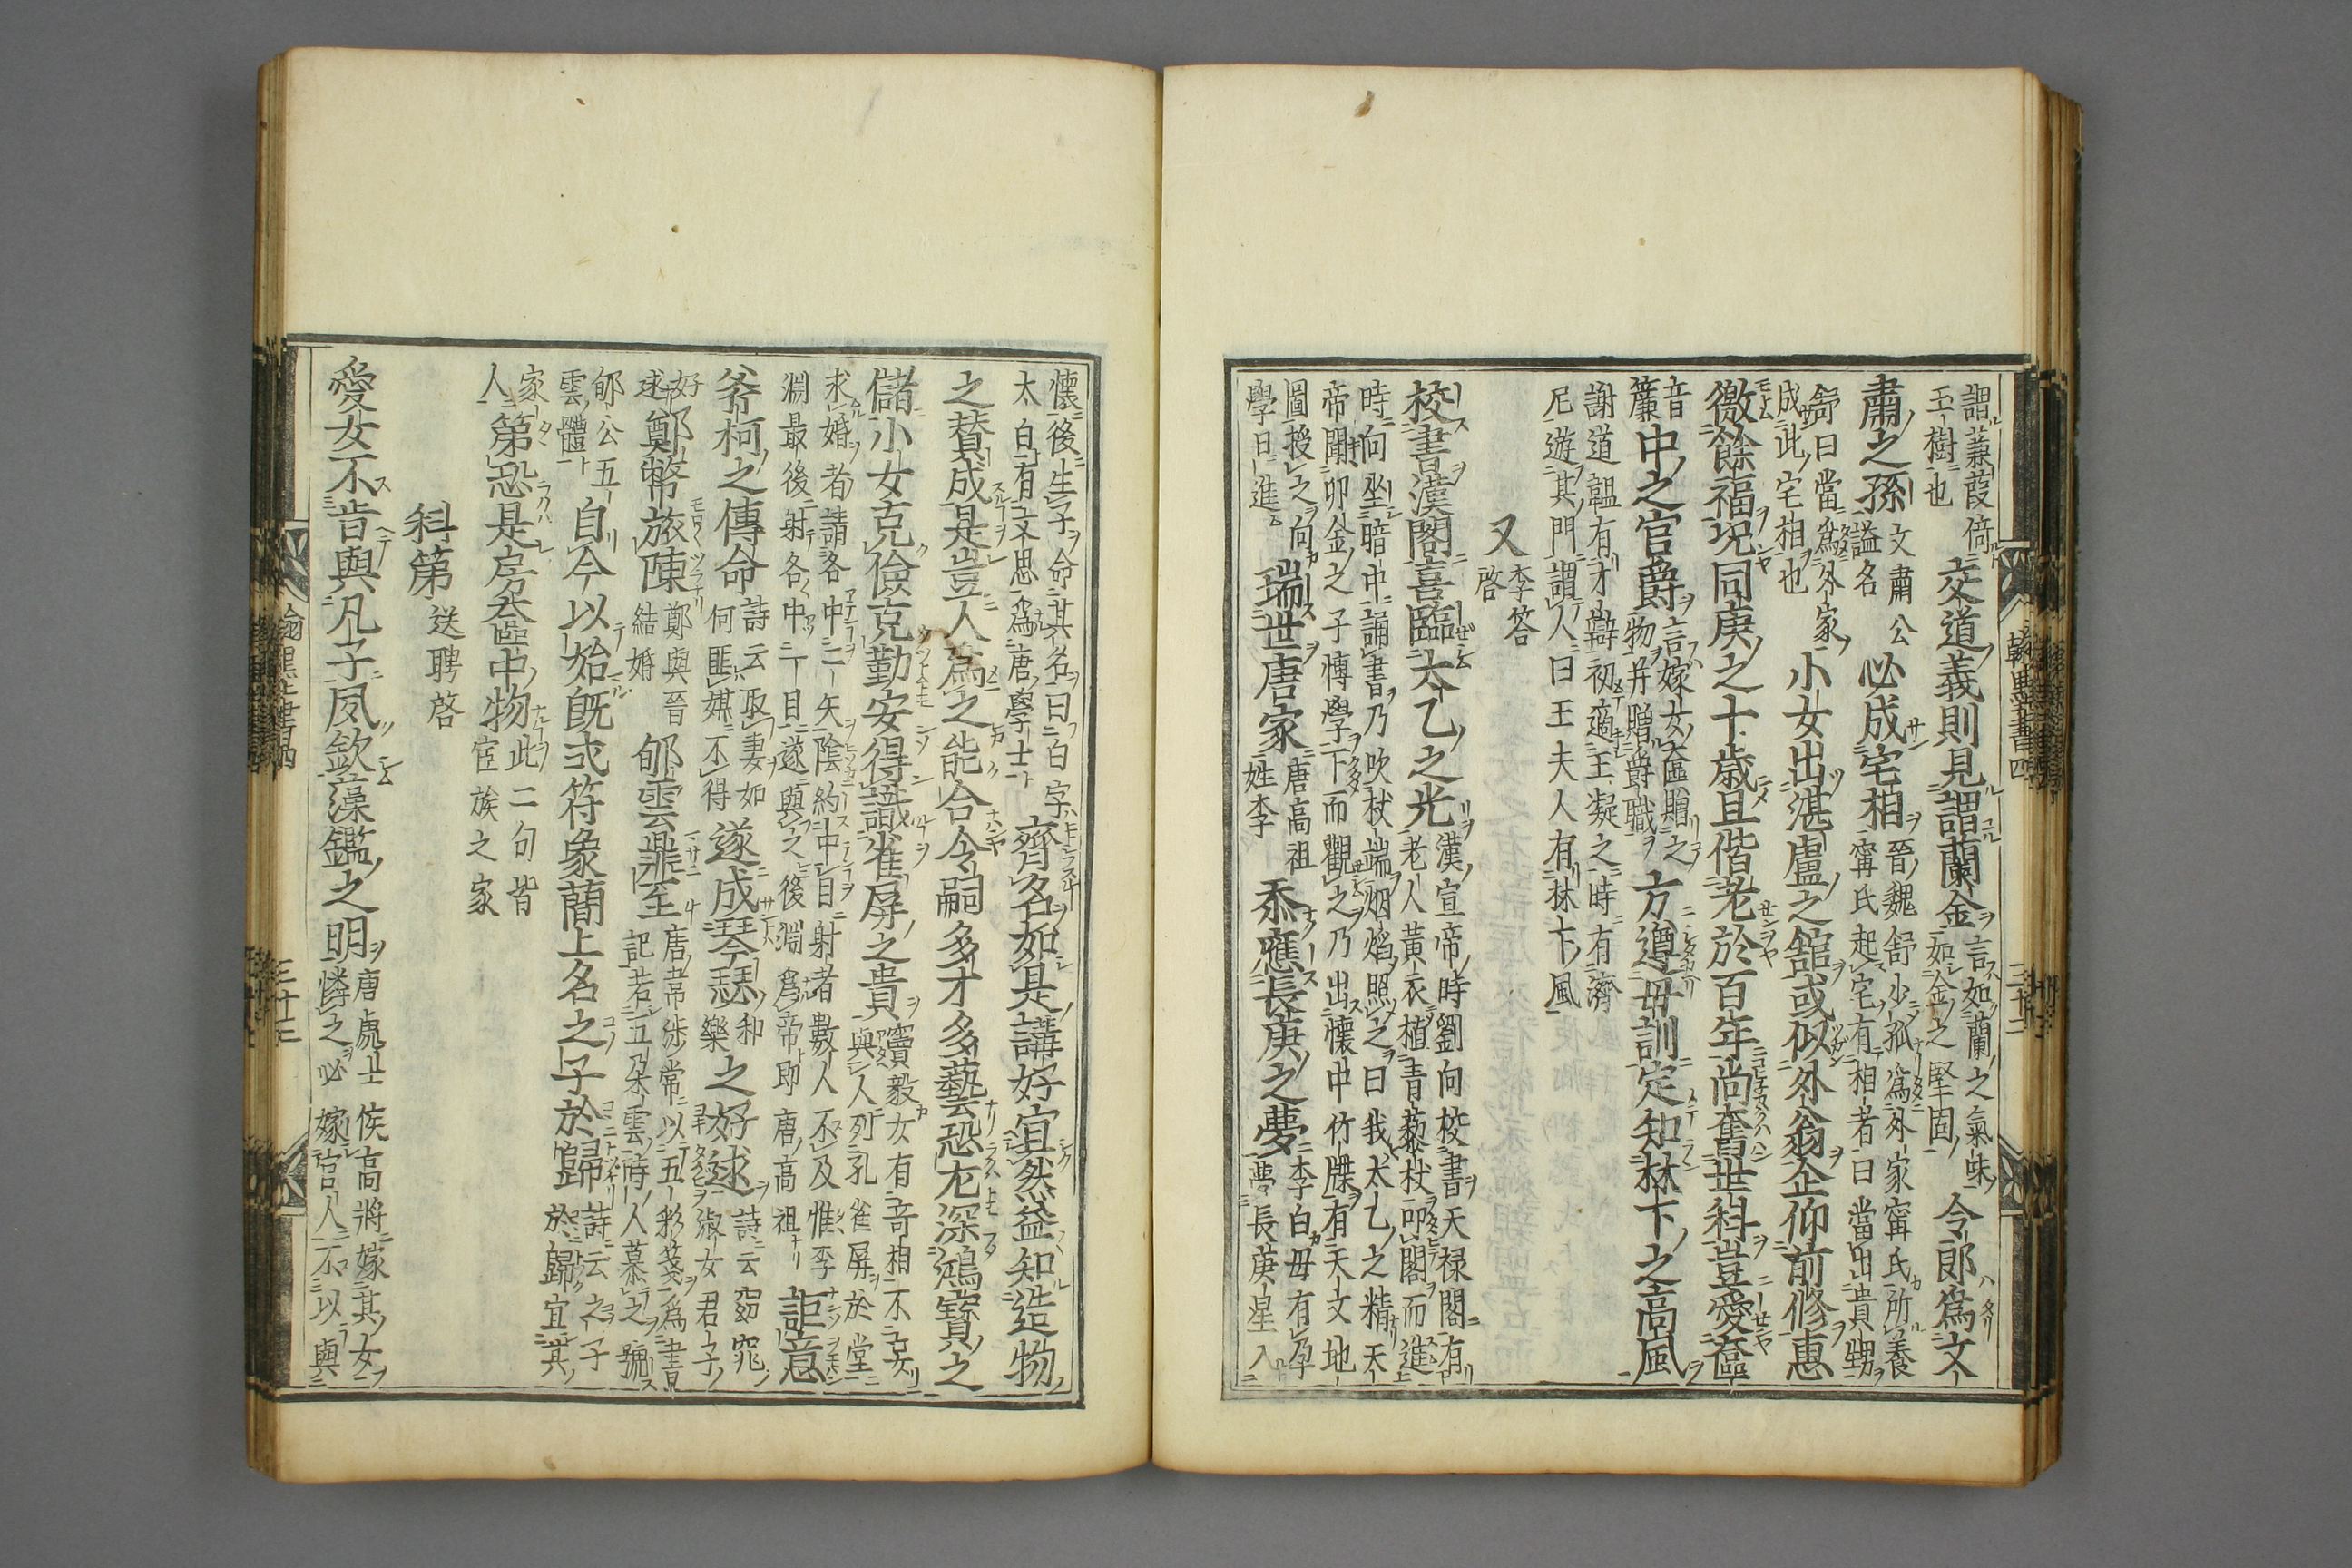 謂蒹葭倚玉樹也交道義則見謂蘭金言如蘭之氣味如金之堅固令郎為文
肅之孫文肅公謚名必成宅相晉魏舒少孤為外家甯氏所養甯氏起宅有相者曰當出貴甥
舒曰當為外家成此宅相也小女出湛盧之舘或似外翁企仰前修惠
徼餘福況同庚之十歲且偕老於百年尚舊世科豈愛奩
音簾中之官爵言嫁女奩贈之物并贈爵職方遵母訓定知林下之高風
謝道韞有才辯初適王凝之時有濟尼遊其門謂人曰王夫人有林下風
又李答啓
校書漢閣喜臨太乙之光漢宣帝時劉向校書天祿閣有老人黃衣植青藜杖叩閣而進
時向坐暗中誦書乃吹杖端烟焰照之曰我太乙之精天帝聞卯金之子博學下而觀之乃出懷中竹牒有天文地
圖授之向學日進瑞世唐家唐高祖姓李忝應長庚之夢李白母有孕夢長庚星入
翰墨書四
三十二
懷後生子命其名曰白字太白有文思為唐學士齊名如是講好宜然益知造物
之贊成是豈人為之能合令嗣多才多藝恐尤深鴻寶之
儲小女克儉克勤安得識雀屏之貴竇毅女有奇相不妄與人列孔雀屏於堂
求婚者請各中二矢陰約中目射者數人不及惟李淵最後射各中一目遂與之後淵為帝即唐高祖詎意
斧柯之傳命詩云取妻如何匪媒不得遂成琴瑟和樂之好逑詩云窈窕淑女君子
好逑鄭幣旅陳鄭與晉結婚郇雲鼎至唐韋陟常以五彩箋為書記若五朶雲時人慕之號
郇公五雲體自今以始旣弍符象蕳上名之子於歸詩云之子於歸宜其
家人第恐是房奩中物此二句皆宦族之家
科第送聘啓
愛女不肯與凡子夙欽藻鑑之明唐處士侯高將嫁其女憐之必嫁官人不以與
翰墨書四
三十三